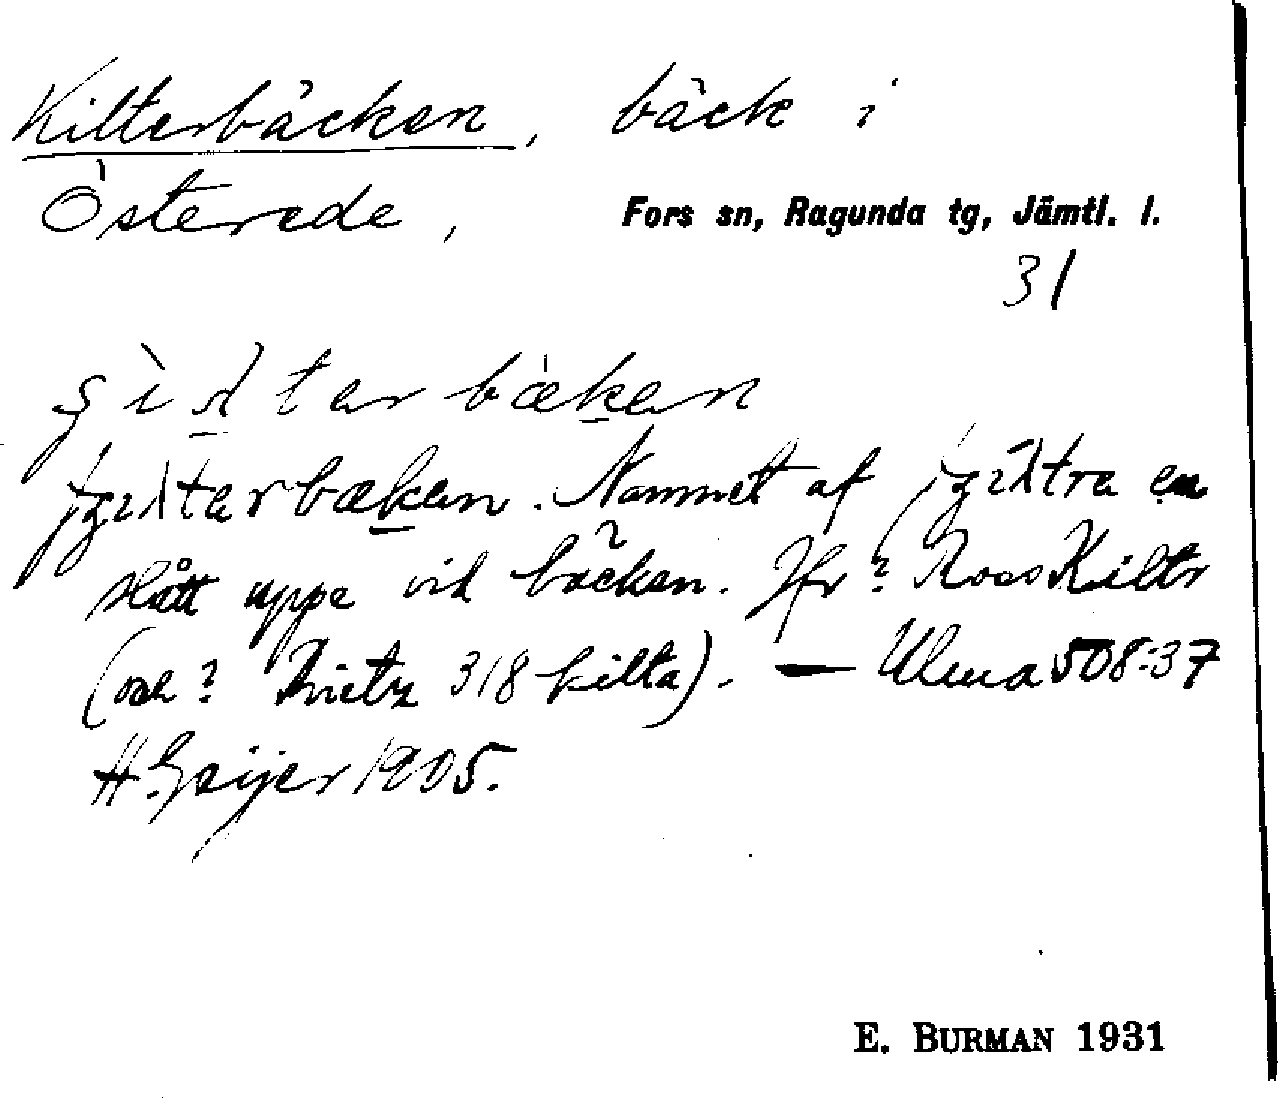 Kilterbäcken, bäck i
Österede, Fors sn, Ragunda tg, Jämtl. l.
31
bæken
bæken. Namnet af en
slått uppe vid bäcken. Jfr? Ross Kiltr
(och? Rietz 318 kilta). — Ulma 508:37
H. Geijer 1905.
E. BURMAN 1931